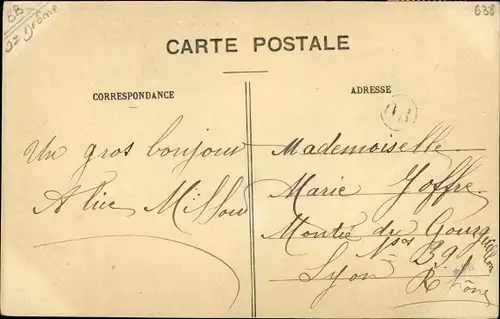 BB
D= Drôme
638
CARTE POSTALE
CORRESPONDANCE
ADRESSE
Un gros bonjour
Alice
Mademoiselle
Marie Joffre
Montée du Gourguillon
Nos 39
Lyon
Rhône